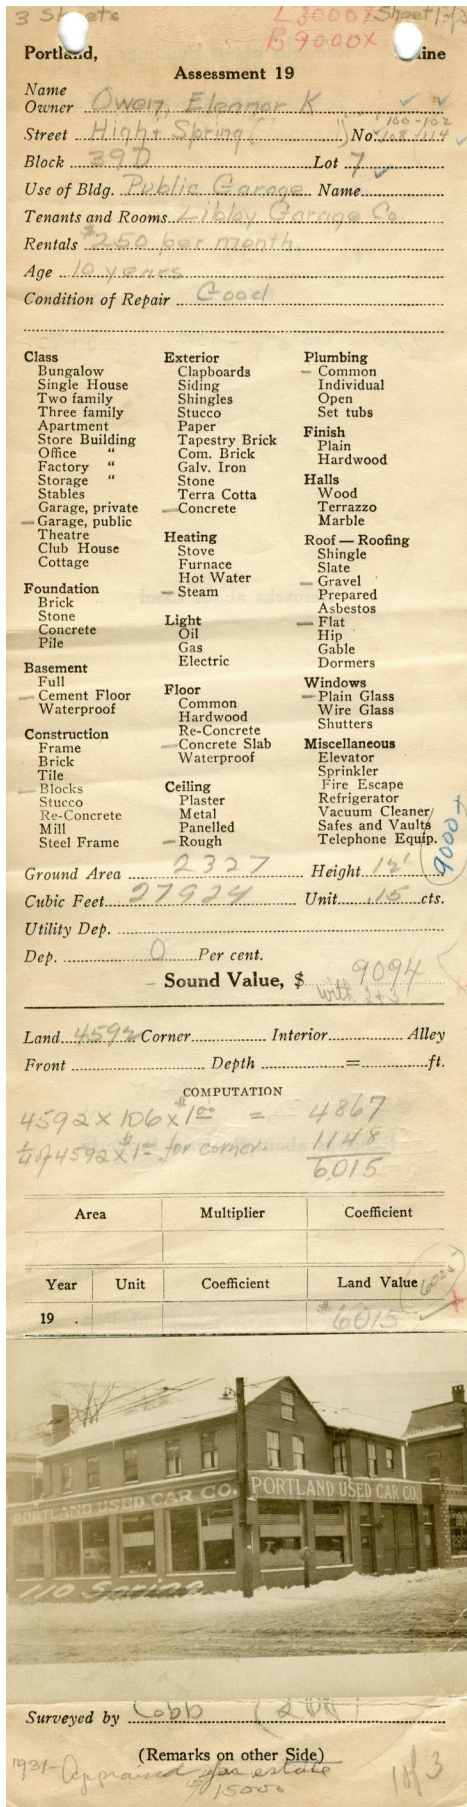 3 Sheets L3000X Sheet 1 of 3
B9000X
Portland, Maine
Assessment 19
Name
Owner Owen, Eleanor K
100-102
Street High & Spring ( ) No. 108-114
Block 39D Lot 7
Use of Bldg. Public Garage Name
Tenants and Rooms Libby Garage Co
Rentals $250 per month
Age 10 years
Condition of Repair Good
Class
Bungalow
Single House
Two family
Three family
Apartment
Store Building
Office "
Factory "
Storage "
Stables
Garage, private
Garage, public
Theatre
Club House
Cottage
Foundation
Brick
Stone
Concrete
Pile
Basement
Full
Cement Floor
Waterproof
Construction
Frame
Brick
Tile
Blocks
Stucco
Re-Concrete
Mill
Steel Frame
Exterior
Clapboards
Siding
Shingles
Stucco
Paper
Tapestry Brick
Com. Brick
Galv. Iron
Stone
Terra Cotta
Concrete
Heating
Stove
Furnace
Hot Water
Steam
Light
Oil
Gas
Electric
Floor
Common
Hardwood
Re-Concrete
Concrete Slab
Waterproof
Ceiling
Plaster
Metal
Panelled
Rough
Plumbing
Common
Individual
Open
Set tubs
Finish
Plain
Hardwood
Halls
Wood
Terrazzo
Marble
Roof — Roofing
Shingle
Slate
Gravel
Prepared
Asbestos
Flat
Hip
Gable
Dormers
Windows
Plain Glass
Wire Glass
Shutters
Miscellaneous
Elevator
Sprinkler
Fire Escape
Refrigerator
Vacuum Cleaner
Safes and Vaults
Telephone Equip.
9000
Ground Area 2327 Height 12'
Cubic Feet 27924 Unit .15 cts.
Utility Dep.
Dep. 0 Per cent.
Sound Value, $ 9094
with 2+3
Land 4592 Corner Interior Alley
Front Depth = ft.
COMPUTATION
4592 X 106 X $1.00 = 4867
1/4 of 4592 X $1.00 for corner 1148
6015
Area Multiplier Coefficient
Year Unit Coefficient Land Value 6025
19 . $6015
PORTLAND USED CAR CO. PORTLAND USED CAR CO.
110 Spring
Surveyed by Cobb
(Remarks on other Side)
1931- Appraised for estate 1 of 3
$15000